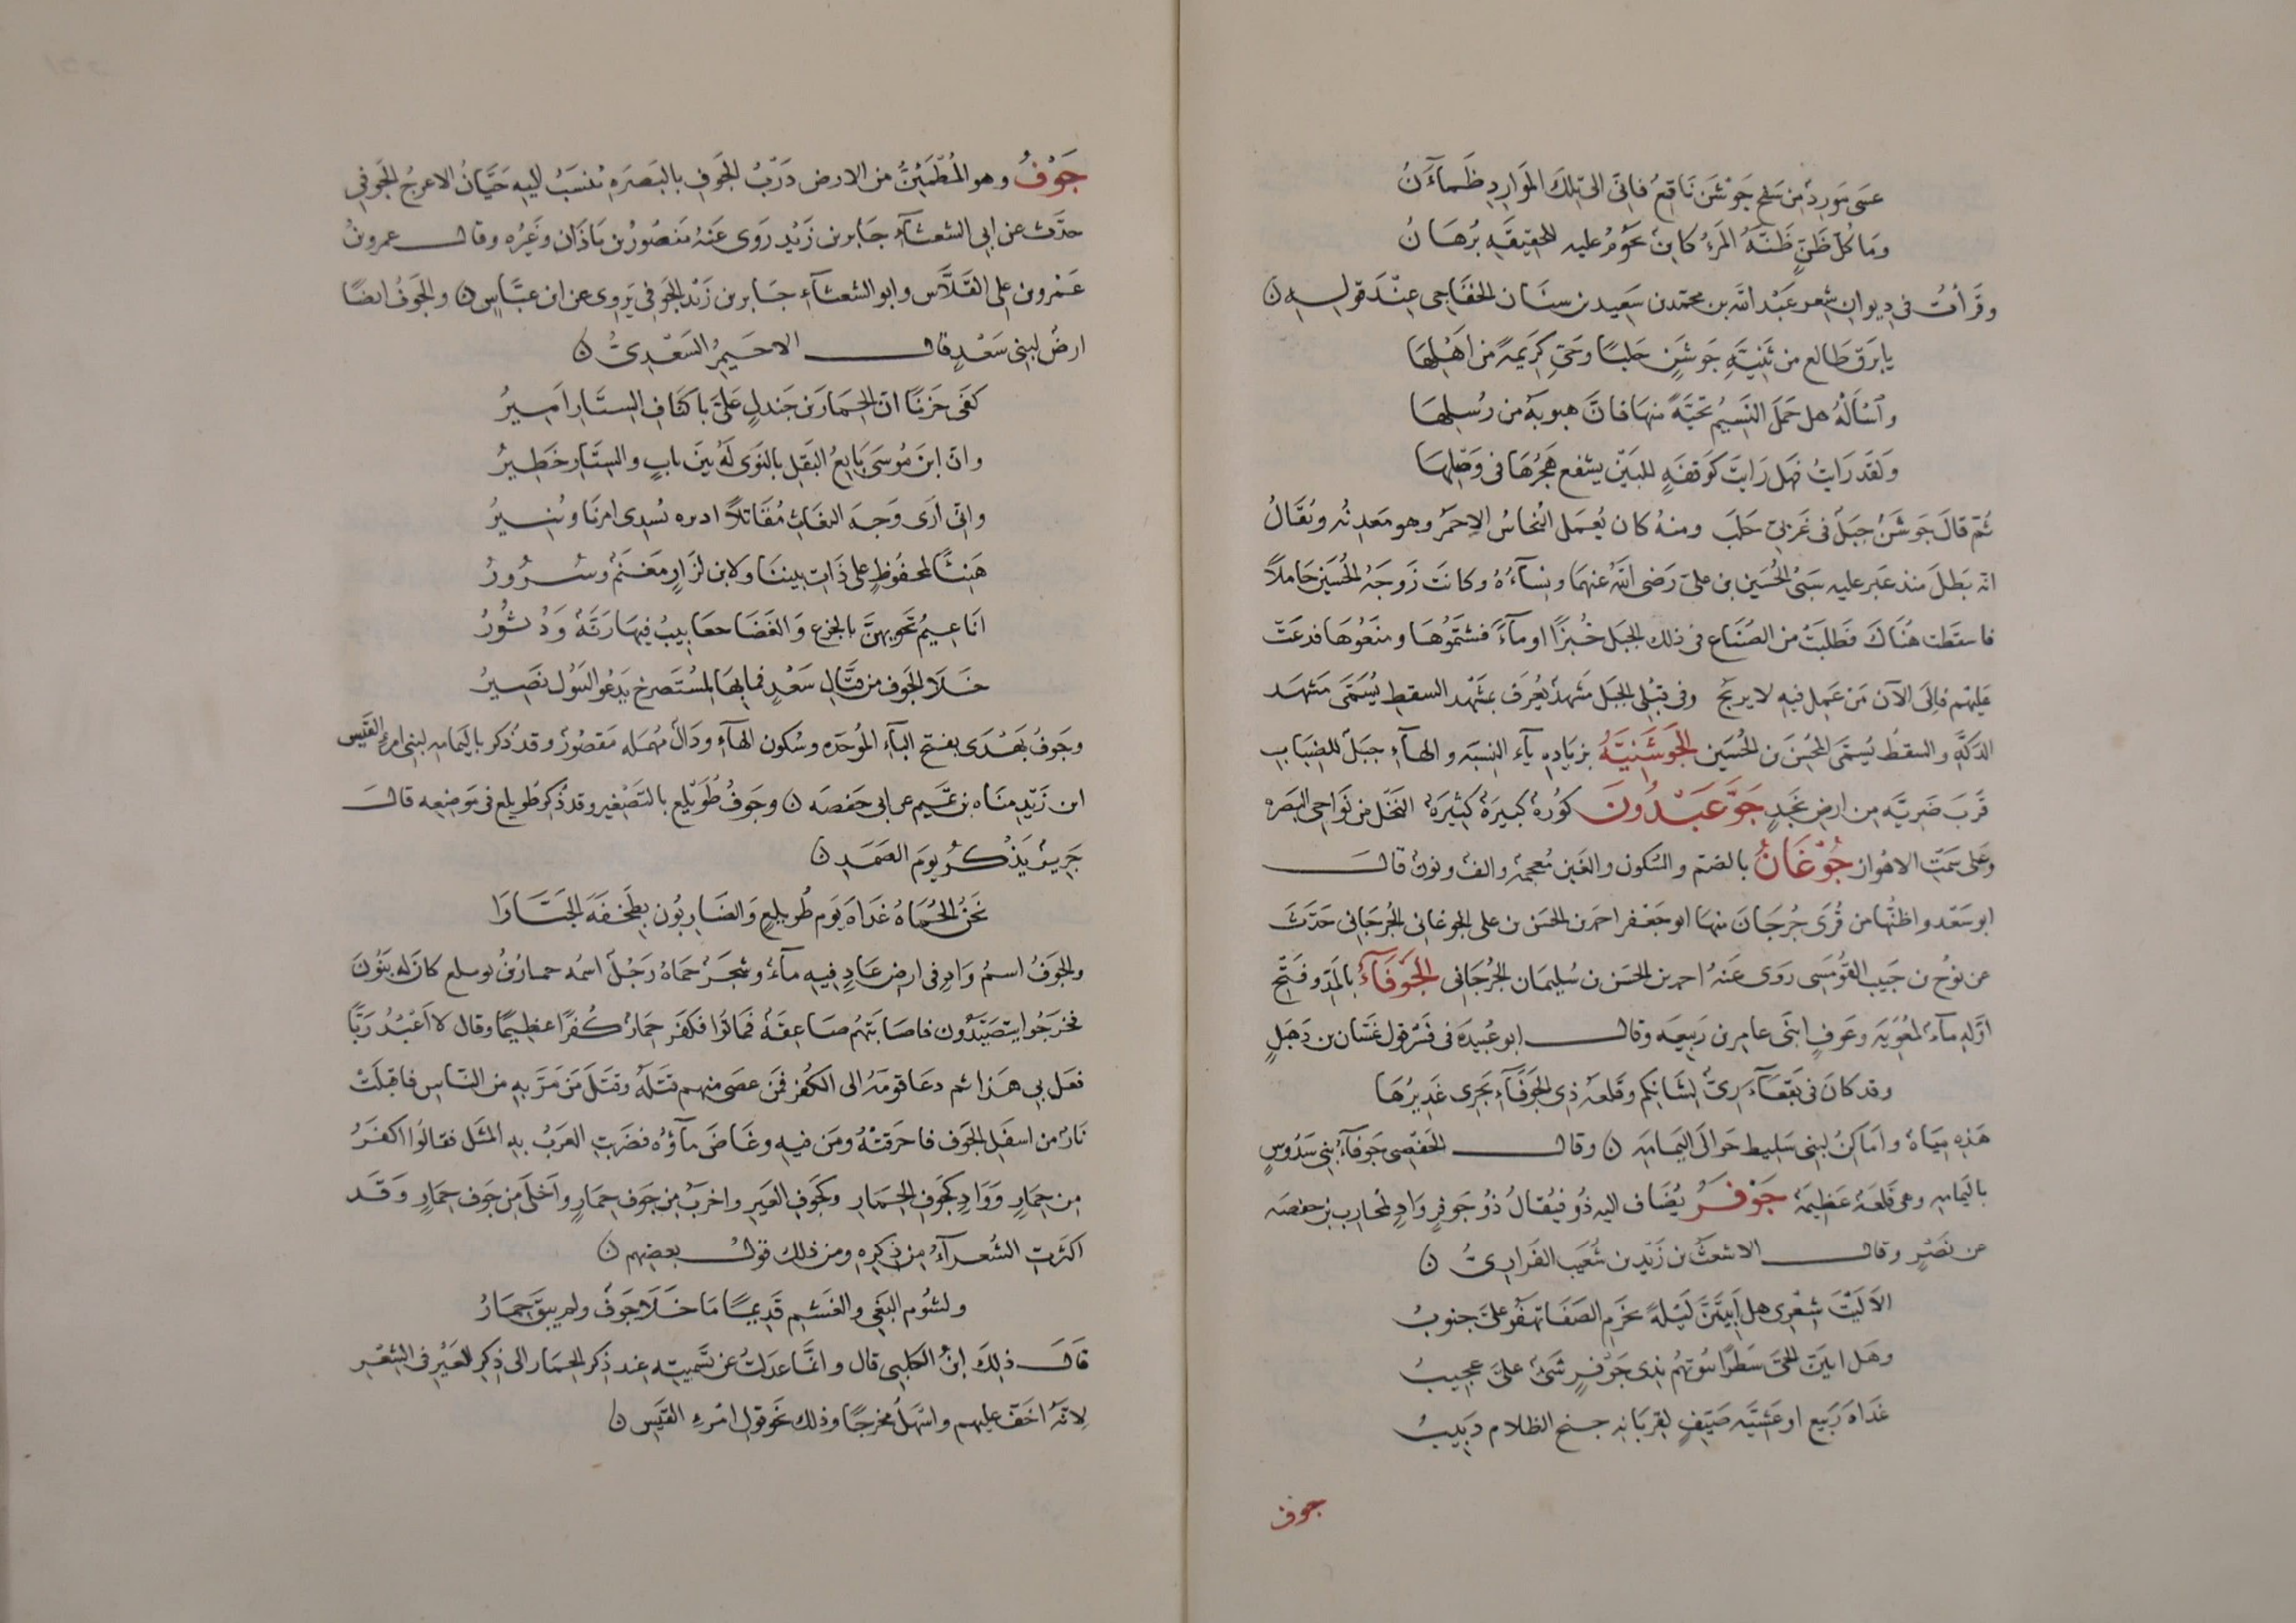 عسَى مَورِدٌ مِن سَفح جَوْشَنَ نَاقِعٌ فانّى الى تِلكَ المَوَارِدِ ظَمآءَنُ
ومَا كُلّ ظَنٍّ ظَنّهُ المَرءُ كاينٌ يحَوُم عليه للحقِيقَهِ بُرهَانُ
وقَرأتُ فى دِيوان شِعر عَبْد الله بن محمّد بن سَعِيد بن سنَان الخفَاجى عِنْدَ قولهِ ن
يا بَرق طَالع من ثَنِيَّهِ جَوشَنٍ حَلبًا وحَىِّ كَرِيمةً مِن اَهْلِهَا
واسْاَلْهُ هل حَمَلَ النَسِيمُ تحيّةً منهَا فانَّ هبوبَهُ من رُسلِهَا
وَلقَد رَايتُ فهَل رَايتَ كَوَقفَهٍ للبَيْنِ يشفع هَجْرُهَا فى وَصْلِهَا
ثُمّ قالَ جَوشَنُ جبَلٌ فى غَربىّ حَلبَ ومنهُ كان يُحمَل النُحاسُ الاحمَرُ وهو مَعدِنُه ويُقالُ
انّه بَطلَ منذ عَبر عليهِ سَبْىُ الحُسَين بن علىّ رَضى اللهُ عنهمَا ونِسآءُهُ وكانَت زَوجَهُ الحُسَين حَاملاً
فاسقَطت هُنَاكَ فطَلبَتْ من الصُنَاع فى ذلك الجبَل خُبزًا او مآءً فشتمُوُهَا ومنَعُوهَا فدعَت
عَليْهم فاِلى الآن مَن عَمِل فيهِ لا يربح وفى قبْلى الجبَل مَشهدٌ يُعرَف بمَشْهد السقط يُسَمّى مَشهَد
الدَكّهِ والسقطُ يُسمّى المُحسِنَ بن الحُسَين الجَوشَنِيَّهُ بزيَادهِ يآءِ النِسبَه والهآءِ جبَلٌ للضِبَاب
قُربَ ضَرِيّه مِن ارض نَجدٍ جَوّ عَبْدُونَ كوُرهٌ كبيرَهٌ كثِيرَهُ النَخْل من نَوَاحى البَصَره
وعَلى سَمْتِ الاهوَاز جُوْغَانُ بالضم والسُكون والغَين مُعجمهٌ والف ونون قالَ
ابو سَعْد واظنّها من قُرَى جُرجَانَ منهَا ابو جَعْفر احمَد بن الحسَن بن على الجوغانى الجُرجَانى حَدَّثَ
عن نوُح بن حَبيب القُومَسِى رَوَى عَنهُ احمد بن الحسَن بن سُليمَان الجُرجَانى الجَوْفَآءُ بالمَدّ وفَتح
اوّلهِ مآءٌ لمُعوِيَهَ وعَوفٍ ابنَى عامِر بن رَبيعه وقال ابو عُبيدَه فى تفسير قول غَسّان بن ذُهَيلٍ
وقد كانَ فى بَقعآءَ رِىٌّ لِشَائكم وقَلعهِ ذِى الجَوْفآءِ يَجرى غَدِيرُهَا
هَذِهِ مِيَاهٌ واَمَاكِنُ لبنى سَلِيط حَوالَى اليَمَامَهِ ن وقال الحَفْصِى جَوفآءُ بنى سَدُوسٍ
باليَمامهِ وهى قَلعَهٌ عَظِيمَهٌ جَوْفَرُ يُضَاف اليهِ ذُو فيُقالُ ذُو جَوفرٍ وَادٍ لمُحارب بن خصَفَه
عن نَصْرٍ وقال الاشعثُ بن زَيْد بن شُعَيب الفَزَارِىُّ ن
الاَ لَيْتَ شِعْرِى هل اَبيتَنَّ لَيْلةً بحَزمِ الصَفَا تهفوُ علىَّ جنوبُ
وهَل ابيَنّ الحىَّ سَطرًا بيُوتهُم بذى جَوْفرٍ شئٌ علىَّ عجيبُ
غَدَاهَ رَبيع او عَشيّه صَيّفٍ لقريَانه جنح الظلام دَبيبُ
جوف
جَوْفُ وهو المُطْمَئِنُّ من الارض دَرْبُ الجَوفِ بالبَصرَهِ يُنسَبُ اليهِ حَيَّانُ الاعرجُ الجَوفِى
حدّث عن ابى الشعثآءِ جَابر بن زَيْد رَوى عَنهُ مَنصُورُ بن زَاذَان وغَيرُه وقال عمرو بنُ
عَمْرو بن على القَلاَّس وابو الشعثآءِ جَابر بن زَيْد الجَوفى يَروِى عن ابن عبّاسٍ ن والجَوفُ ايضًا
ارضٌ لبنى سَعْدٍ قال الاحَيمِرُ السَعْدِىُّ ن
كفَى حَزنًا انّ الحِمَار بن جَندلٍ علىّ باكنَافِ السِتَار اَمِيرُ
وانّ ابنَ مُوسَى بَايعُ البَقلِ بالنوَى لَهُ بَينَ بابٍ والستَار خَطِيرُ
وانّى اَرَى وَجهَ البغَاث مُقَاتلاً اديره يُسدِى امرنَا ويُنِيرُ
هَنيئًا لمحفُوظٍ على ذَات بيننَا ولابن لزَازٍ مَغنَمٌ وسُرُورُ
انَاعيمُ تَحوِيهنَّ بالجزع والغَضَا جعَابِيبُ فيهَا رَثّهٌ وَدُثُورُ
خَلَا الجَوف من قتَّالِ سَعْدٍ فما بهَا لمُسْتَصرخ يَدعُو السؤل نَصِيرُ
وجَوفُ بَهْدَى بفتح البآءِ المُوحّده وسُكون الهآءِ ودَالٌ مُهمَله مَقصُورٌ وقد ذُكر باليَمامه لبنى امرءِ القَيس
ابن زَيْدِ منَاه بن تمَيم عن ابى حَفصَه ن وجَوفُ طُوَيلِع بالتَصْغير وقد ذُكر طُويلع فى مَوضِعِه قالَ
جَرِيرٌ يَذكُرُ يوَمَ الصَمَدِ ن
نَحْنُ الحُمَاهُ غَدَاهَ يَوم طُوَيلعٍ وَالضَاربُون بِطِخفَهَ الجَبّارَا
والجَوفُ اسمُ وَادٍ فى ارض عَادٍ فيهِ مآءٌ وشجَرٌ حمَاهُ رَجُلٌ اسمُه حمارُ بنُ يويلع كانَ لهُ بَنُونَ
فخرَجُوا يتصَيّدُون فاصَابَتهُم صَاعِقَهٌ فماتُوا فكفَر حِمَارٌ كُفرًا عظيمًا وقال لا اَعْبُدُ رَبًّا
فعَل بى هذا ثم دعَا قومَهُ الى الكُفر فمَن عصَى منهم قتَلهُ وقتَلَ مَن مَرّ بهِ من النَاس فاقبَلَتْ
نَارٌ مِن اسفَل الجَوف فاحرَقتْهُ ومَن فيهِ وغَاضَ مآؤه فضَربَتِ العرَبُ بهِ المثَل فقالُوا اكفَرُ
مِن حِمَارٍ ووَادٍ كجَوفِ الحِمَارِ وكجَوفِ العَيرِ واخربُ مِن جَوف حِمَارٍ واَخلَى مِن جَوف حِمَارٍ وَقَد
اكثَرتِ الشُعرآءُ مِن ذكِرهِ ومِن ذلك قولُ بعضهم ن
ولشُومِ البَغى والغَشمِ قَدِيمًا مَا خَلَا جَوفٌ ولم يبقَ حِمَارُ
قَالَ ذلِكَ ابنُ الكلبِى قال وانمَّا عدَلتُ عن تَسمِيتِه عِند ذِكر الحِمَار الى ذِكرِ العَيْر فى الشِعْر
لانّهُ اخَفّ عليهم واسْهَلُ مخرجًا وذلك نحَو قول امْرءِ القَيَس ن